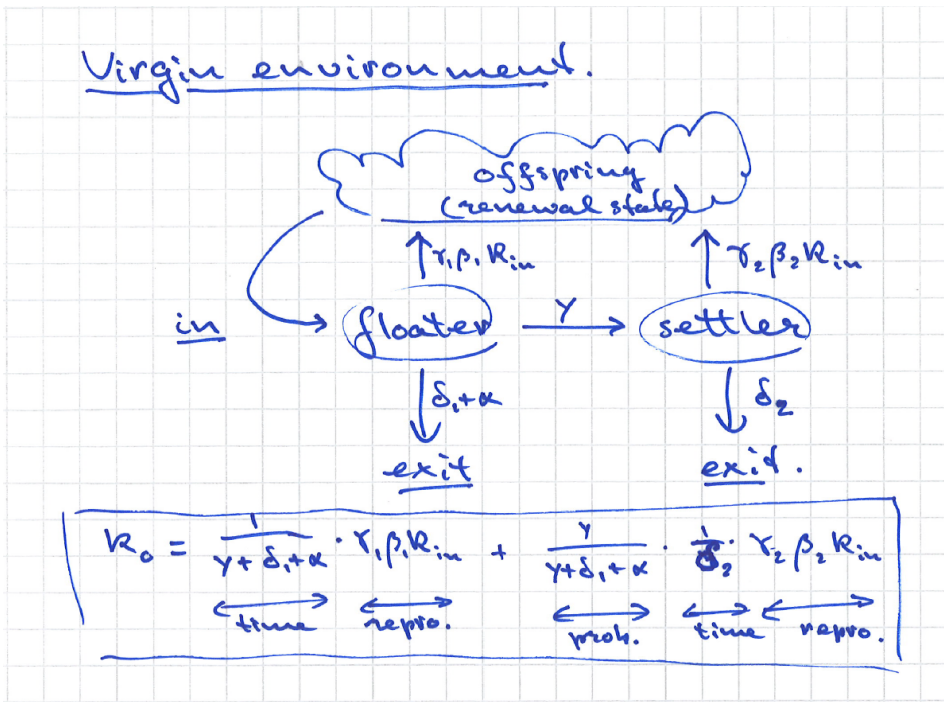 Virgin environment.
offspring
(renewal state)
γ₁β₁R_in γ₂β₂R_in
in floater γ settler
δ₁+α δ₂
exit exit.
R₀ = 1/(γ+δ₁+α) · γ₁β₁R_in + γ/(γ+δ₁+α) · 1/δ₂ · γ₂β₂R_in
time repro. prob. time repro.